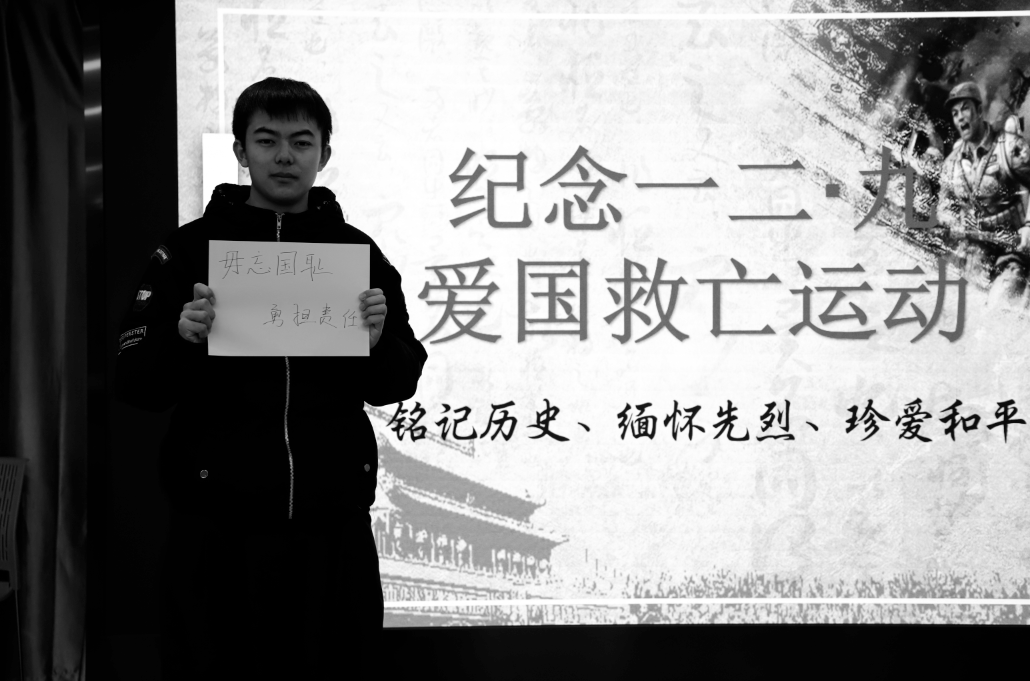 纪念一二·九
爱国救亡运动
铭记历史、缅怀先烈、珍爱和平
毋忘国耻
勇担责任